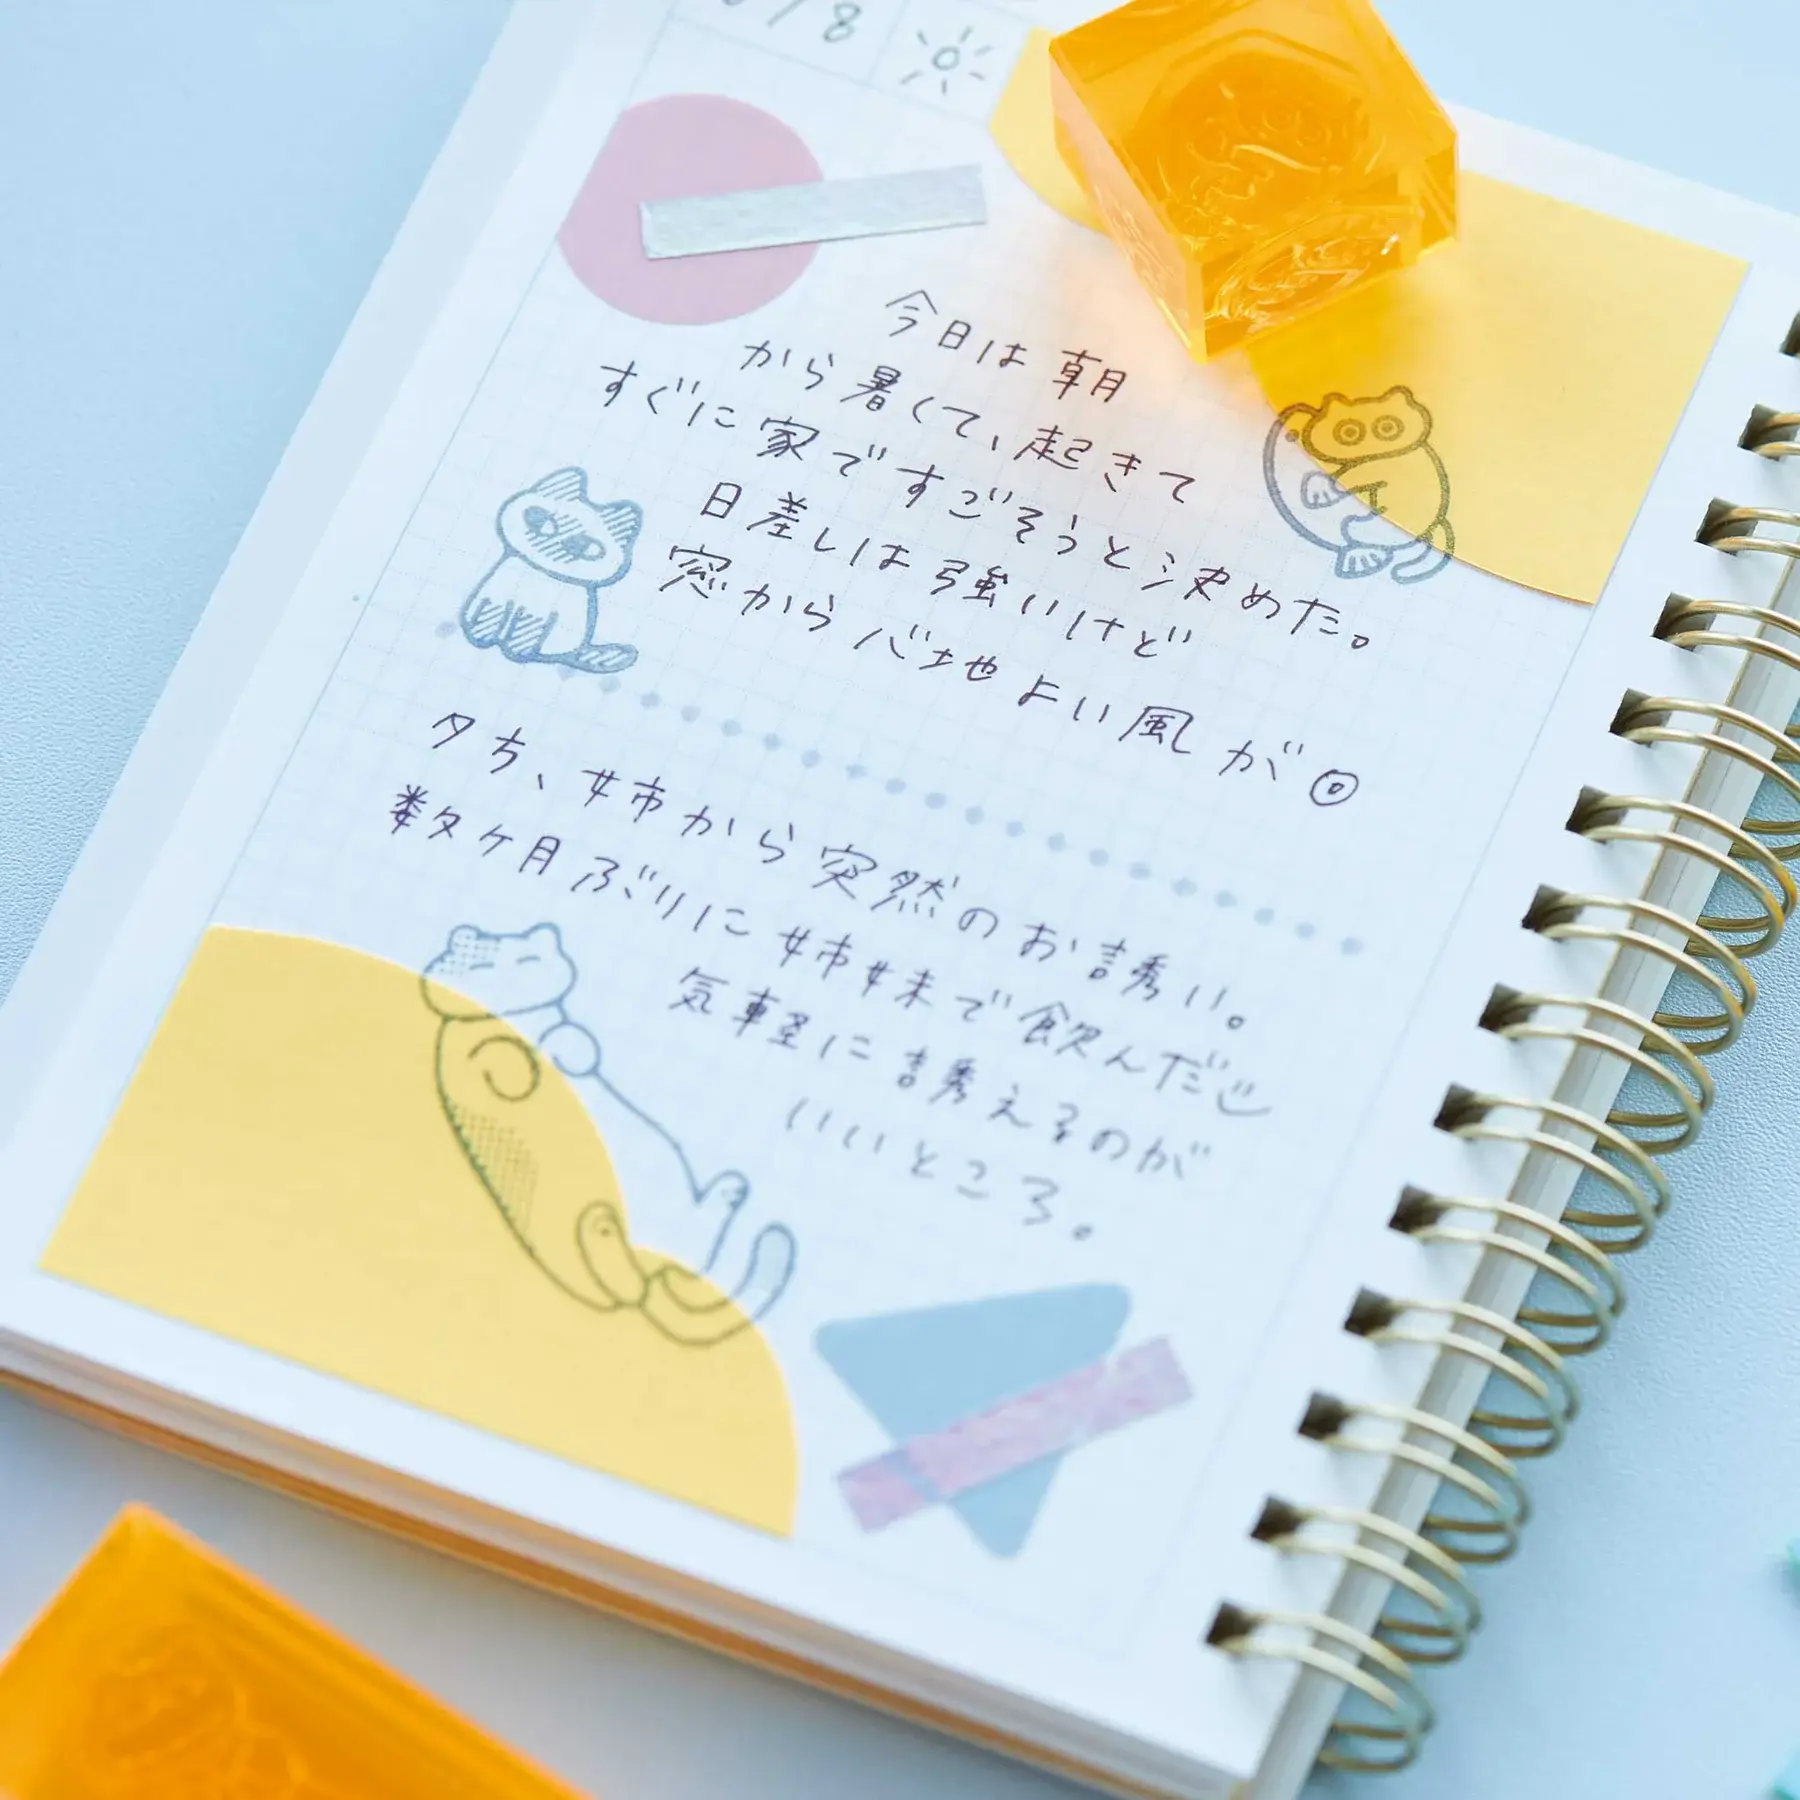 /8
今日は朝
から暑くて、起きて
すぐに家ですごそうと決めた。
日差しは強いけど
窓から心地よい風が◎
夕方、姉から突然のお誘い。
数ヶ月ぶりに姉妹で飲んだ
気軽に誘えるのが
いいところ。